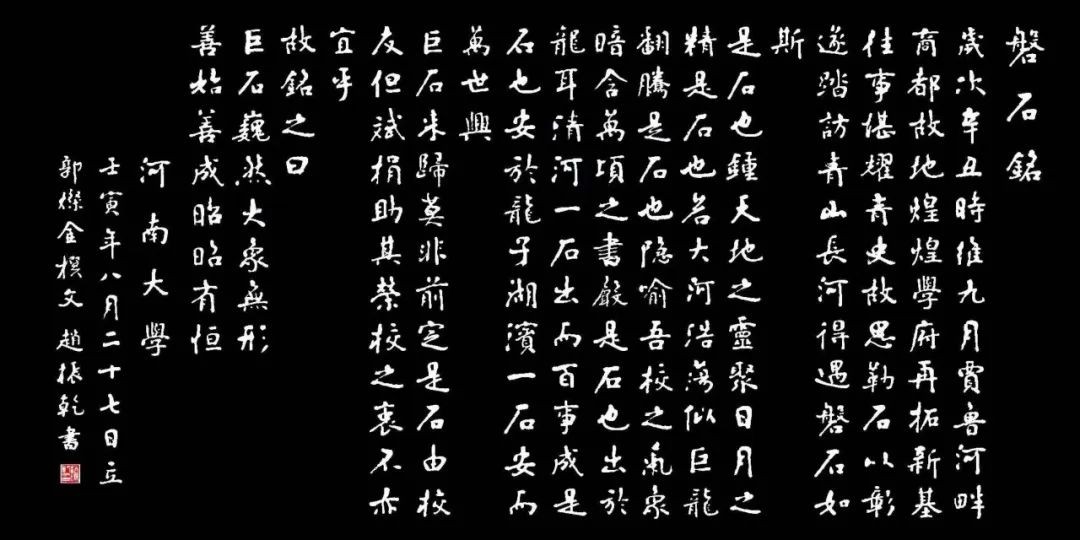 磐石銘
歲次辛丑時維九月賈魯河畔
商都故地煌煌學府再拓新基
往事堪耀青史故思勒石以彰
遂踏訪青山長河得遇磐石如
斯
是石也鍾天地之靈聚日月之
精是石也若大河浩蕩似巨龍
翻騰是石也隐喻吾校之氣象
暗含萬頃之書嚴是石也出於
龍耳清河一石出而百事成是
石也安於龍子湖濱一石安而
萬世興
巨石来歸莫非前定是石由校
友但斌捐助其榮校之衷不亦
宜乎
故銘之曰
巨石巍然大象無形
善始善成昭昭有恒
河南大學
壬寅年八月二十七日立
郭燦金撰文 趙振乾書